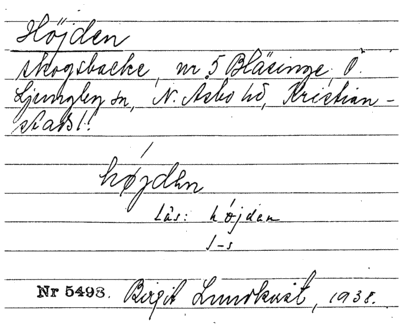 Höjden
skogsbacke, nr 5 Bläsinge, Ö.
Ljungby sn, N. Asbo hd, Kristian-
stads l.
höjden
Läs: höjden
1-s
Nr 5498. Birgit Lundkvist, 1938.